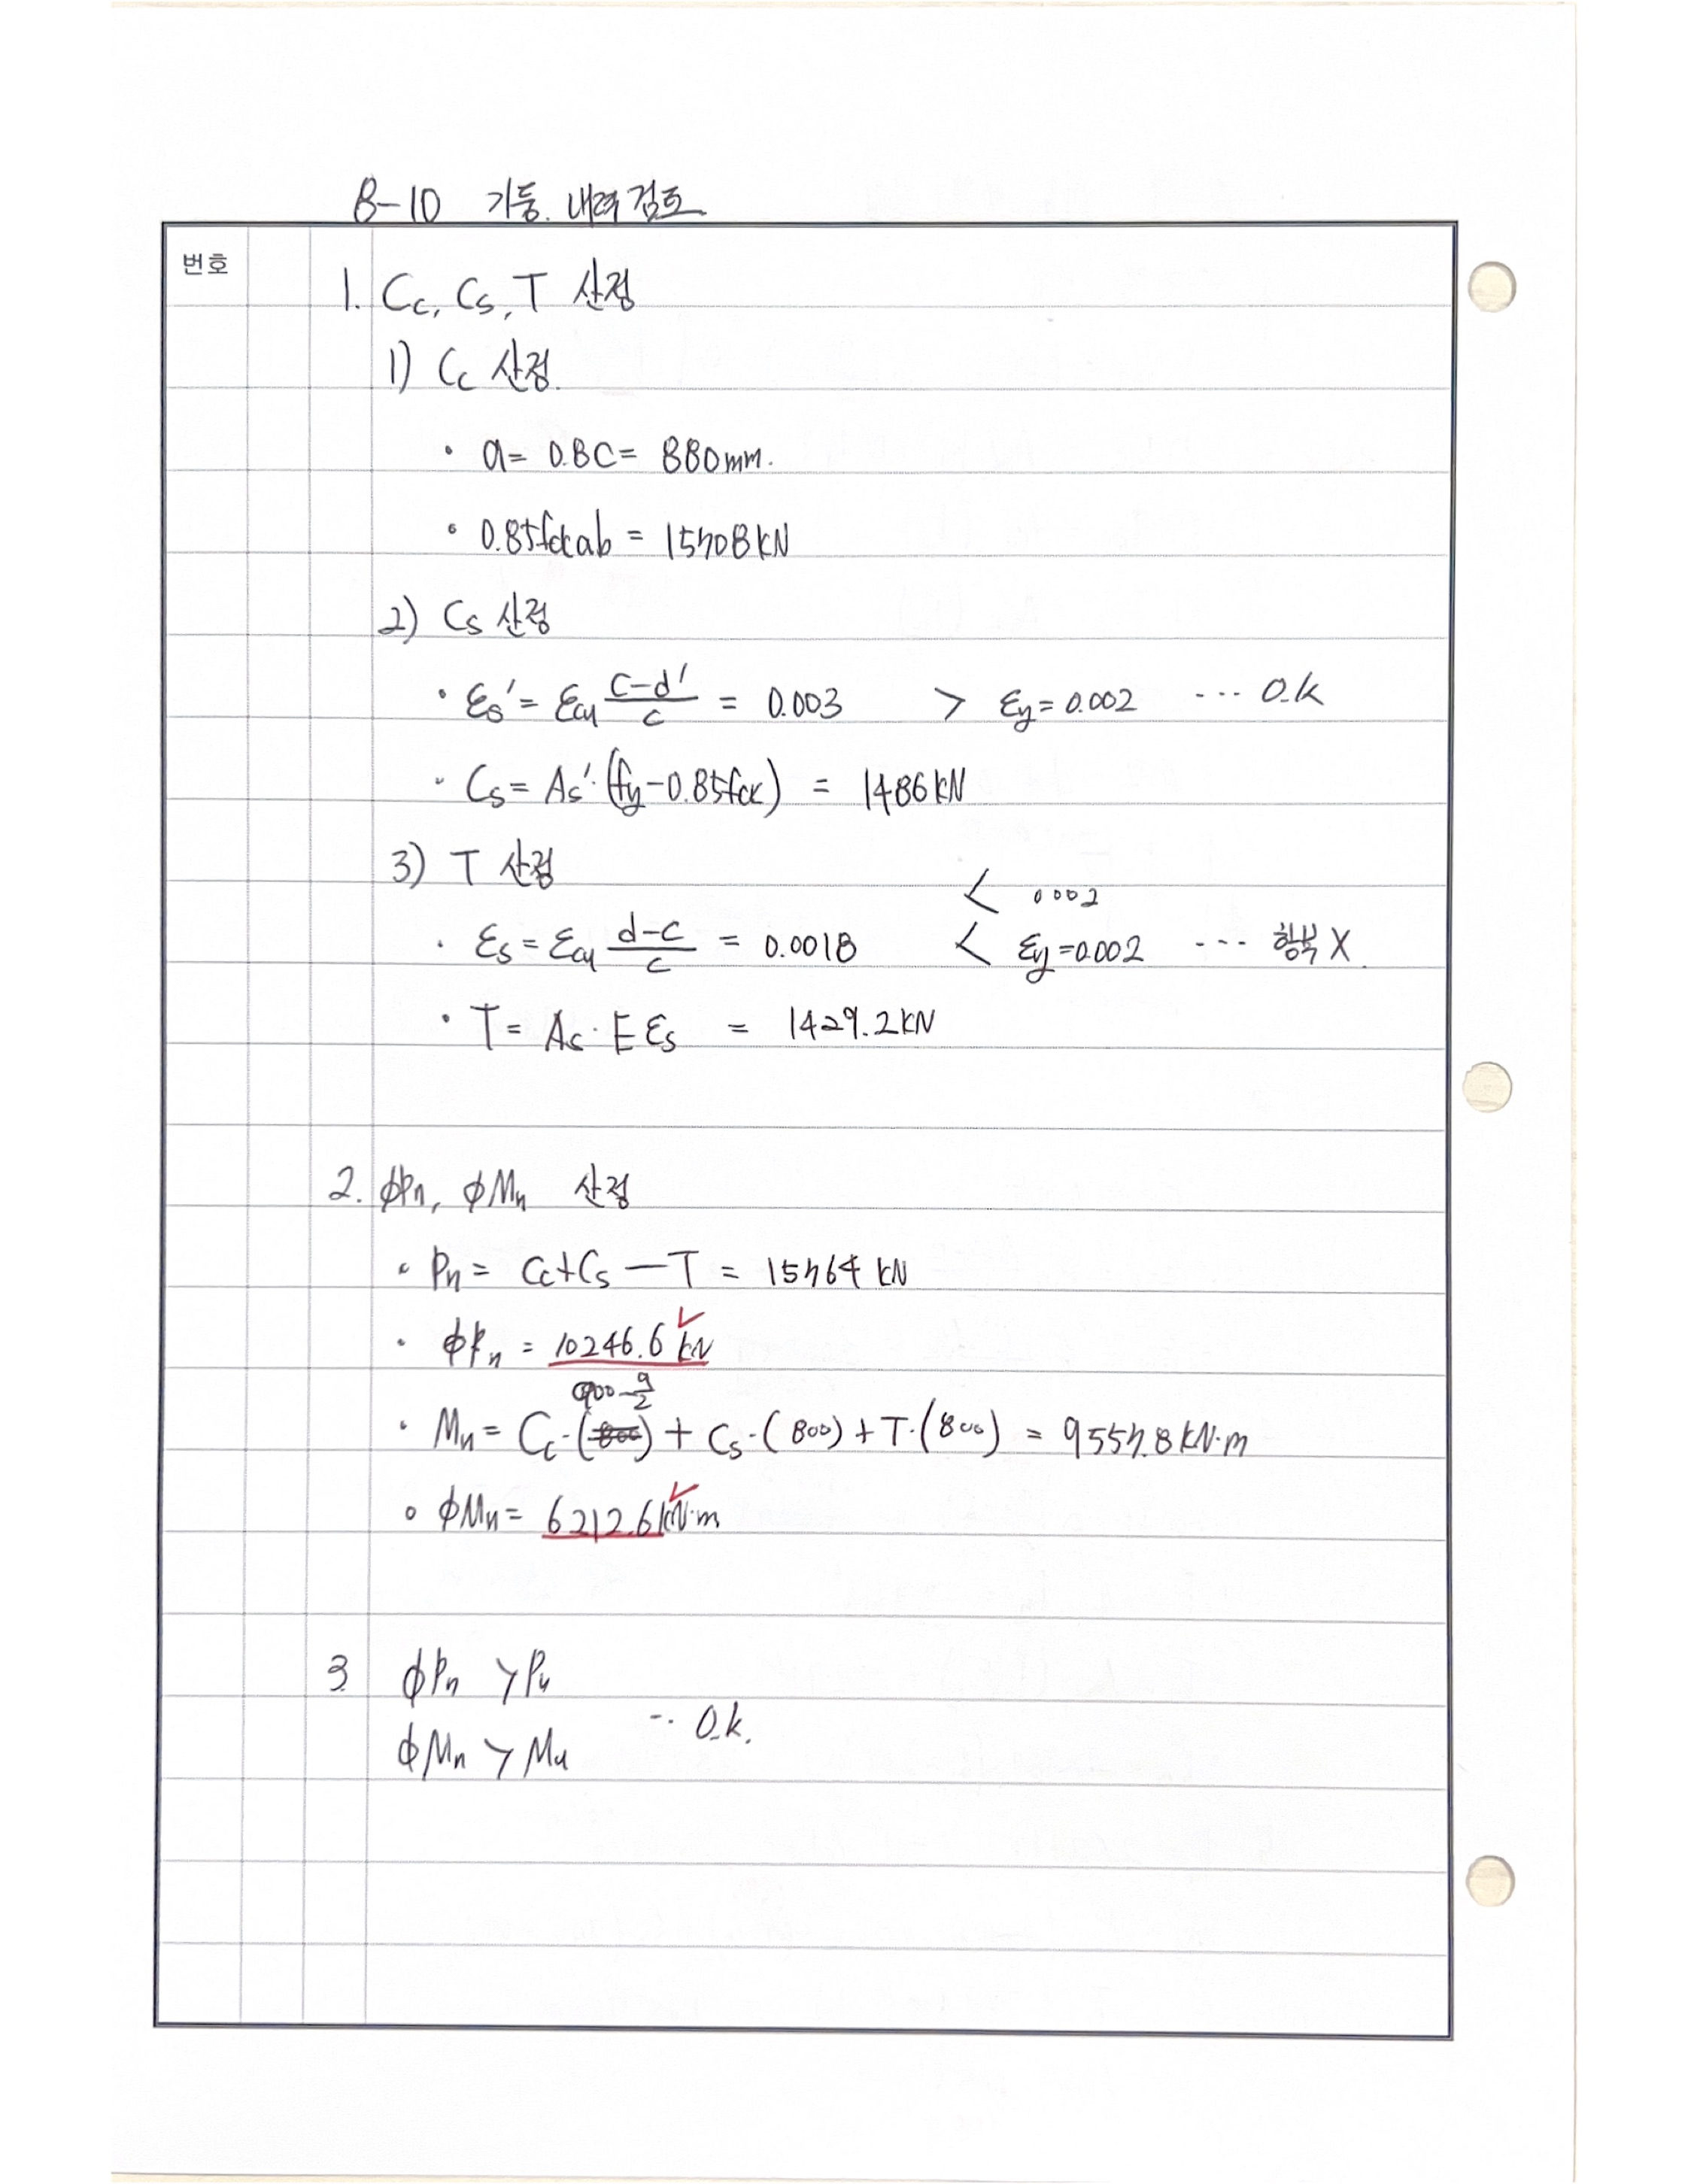 8-10 기둥. 내력 검토
번호
1. Cc, Cs, T 산정
1) Cc 산정.
• a= 0.8C= 880mm.
• 0.85fckab = 15708kN
2) Cs 산정
• εs′= εcu (c-d′)/c = 0.003 > εy=0.002 ··· O.K
• Cs= As′·(fy-0.85fck) = 1486kN
3) T 산정
< 0.002
• εs= εcu (d-c)/c = 0.0018 < εy=0.002 ··· 항복 X.
• T= As·E εs = 1429.2kN
2. φPn, φMn 산정
• Pn= Cc+Cs-T = 15764 kN
• φPn = 10246.6 kN
900-a/2
• Mn= Cc·( ) + Cs·(800) + T·(800) = 9557.8kN·m
• φMn= 6212.6kN·m
3. φPn > Pu
·· O.k.
φMn > Mu